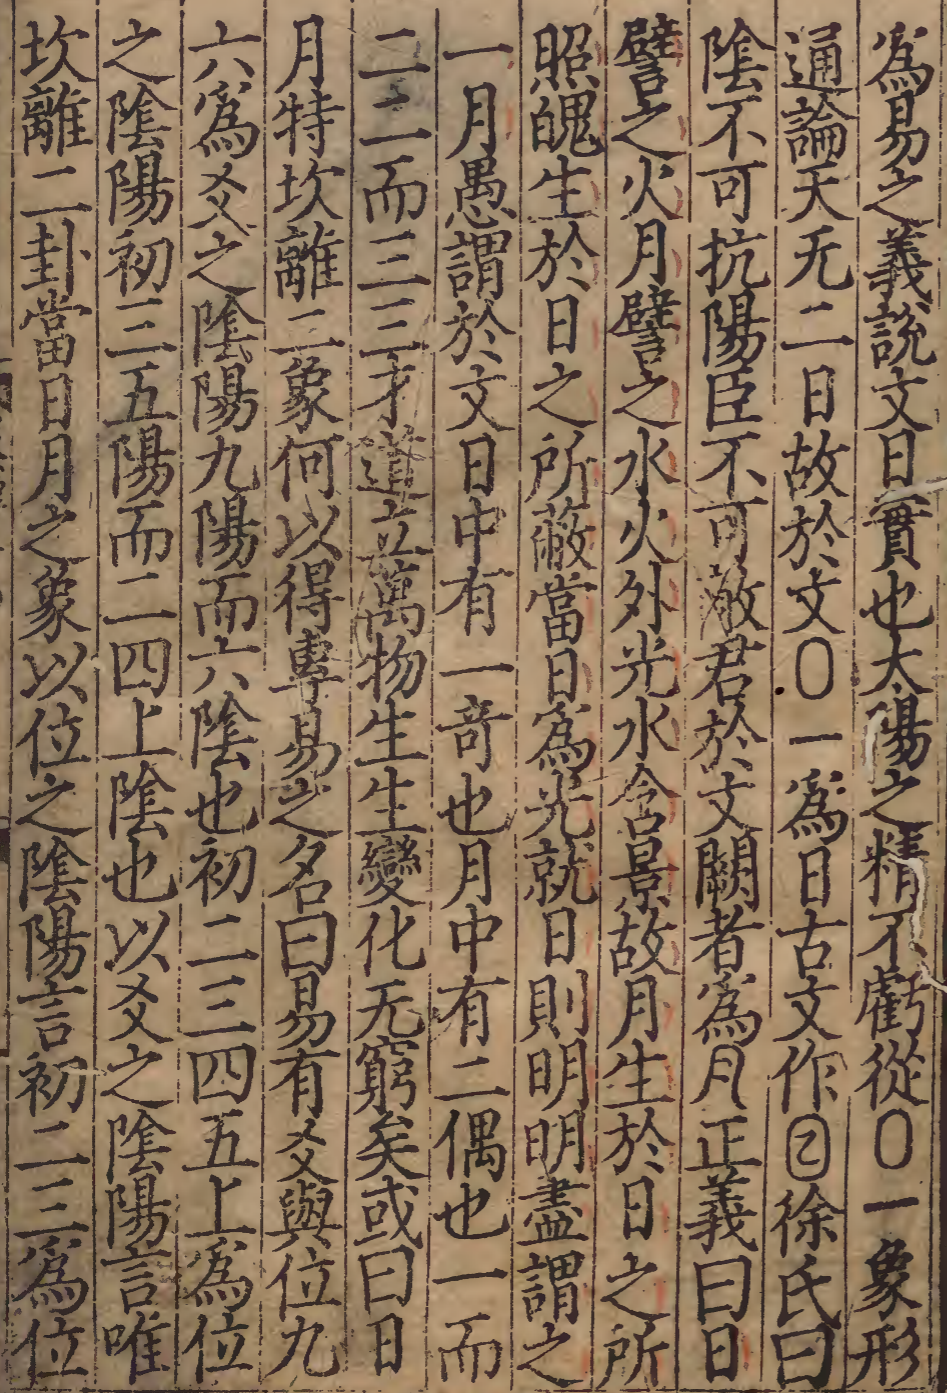 為易之義說文日實也太陽之精不虧從〇一象形
通論天无二日故於文〇一為日古文作㊁徐氏曰
陰不可抗陽臣不可敵君於文闕者為月正義曰日
譬之火月譬之水火外光水含景故月生於日之所
照魄生於日之所蔽當日為光就日則明明盡謂之
一月愚謂於文日中有一奇也月中有二偶也一而
二二而三三才道立萬物生生變化无窮矣或曰日
月特坎離二象何以得專易之名曰易有爻與位九
六為爻之陰陽九陽而六陰也初二三四五上為位
之陰陽初三五陽而二四上陰也以爻之陰陽言唯
坎離二卦當日月之象以位之陰陽言初二三為位